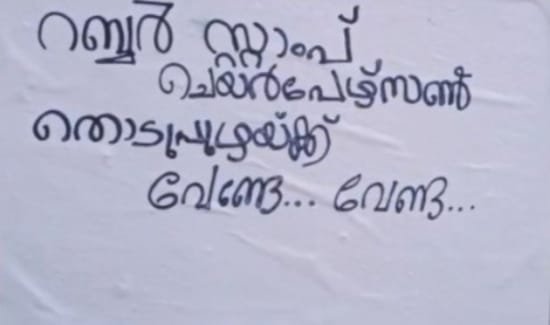 റബ്ബർ സ്റ്റാംപ്
ചെയർപേഴ്സൺ
തൊടുപുഴയ്ക്ക്
വേണ്ടേ... വേണ്ട...